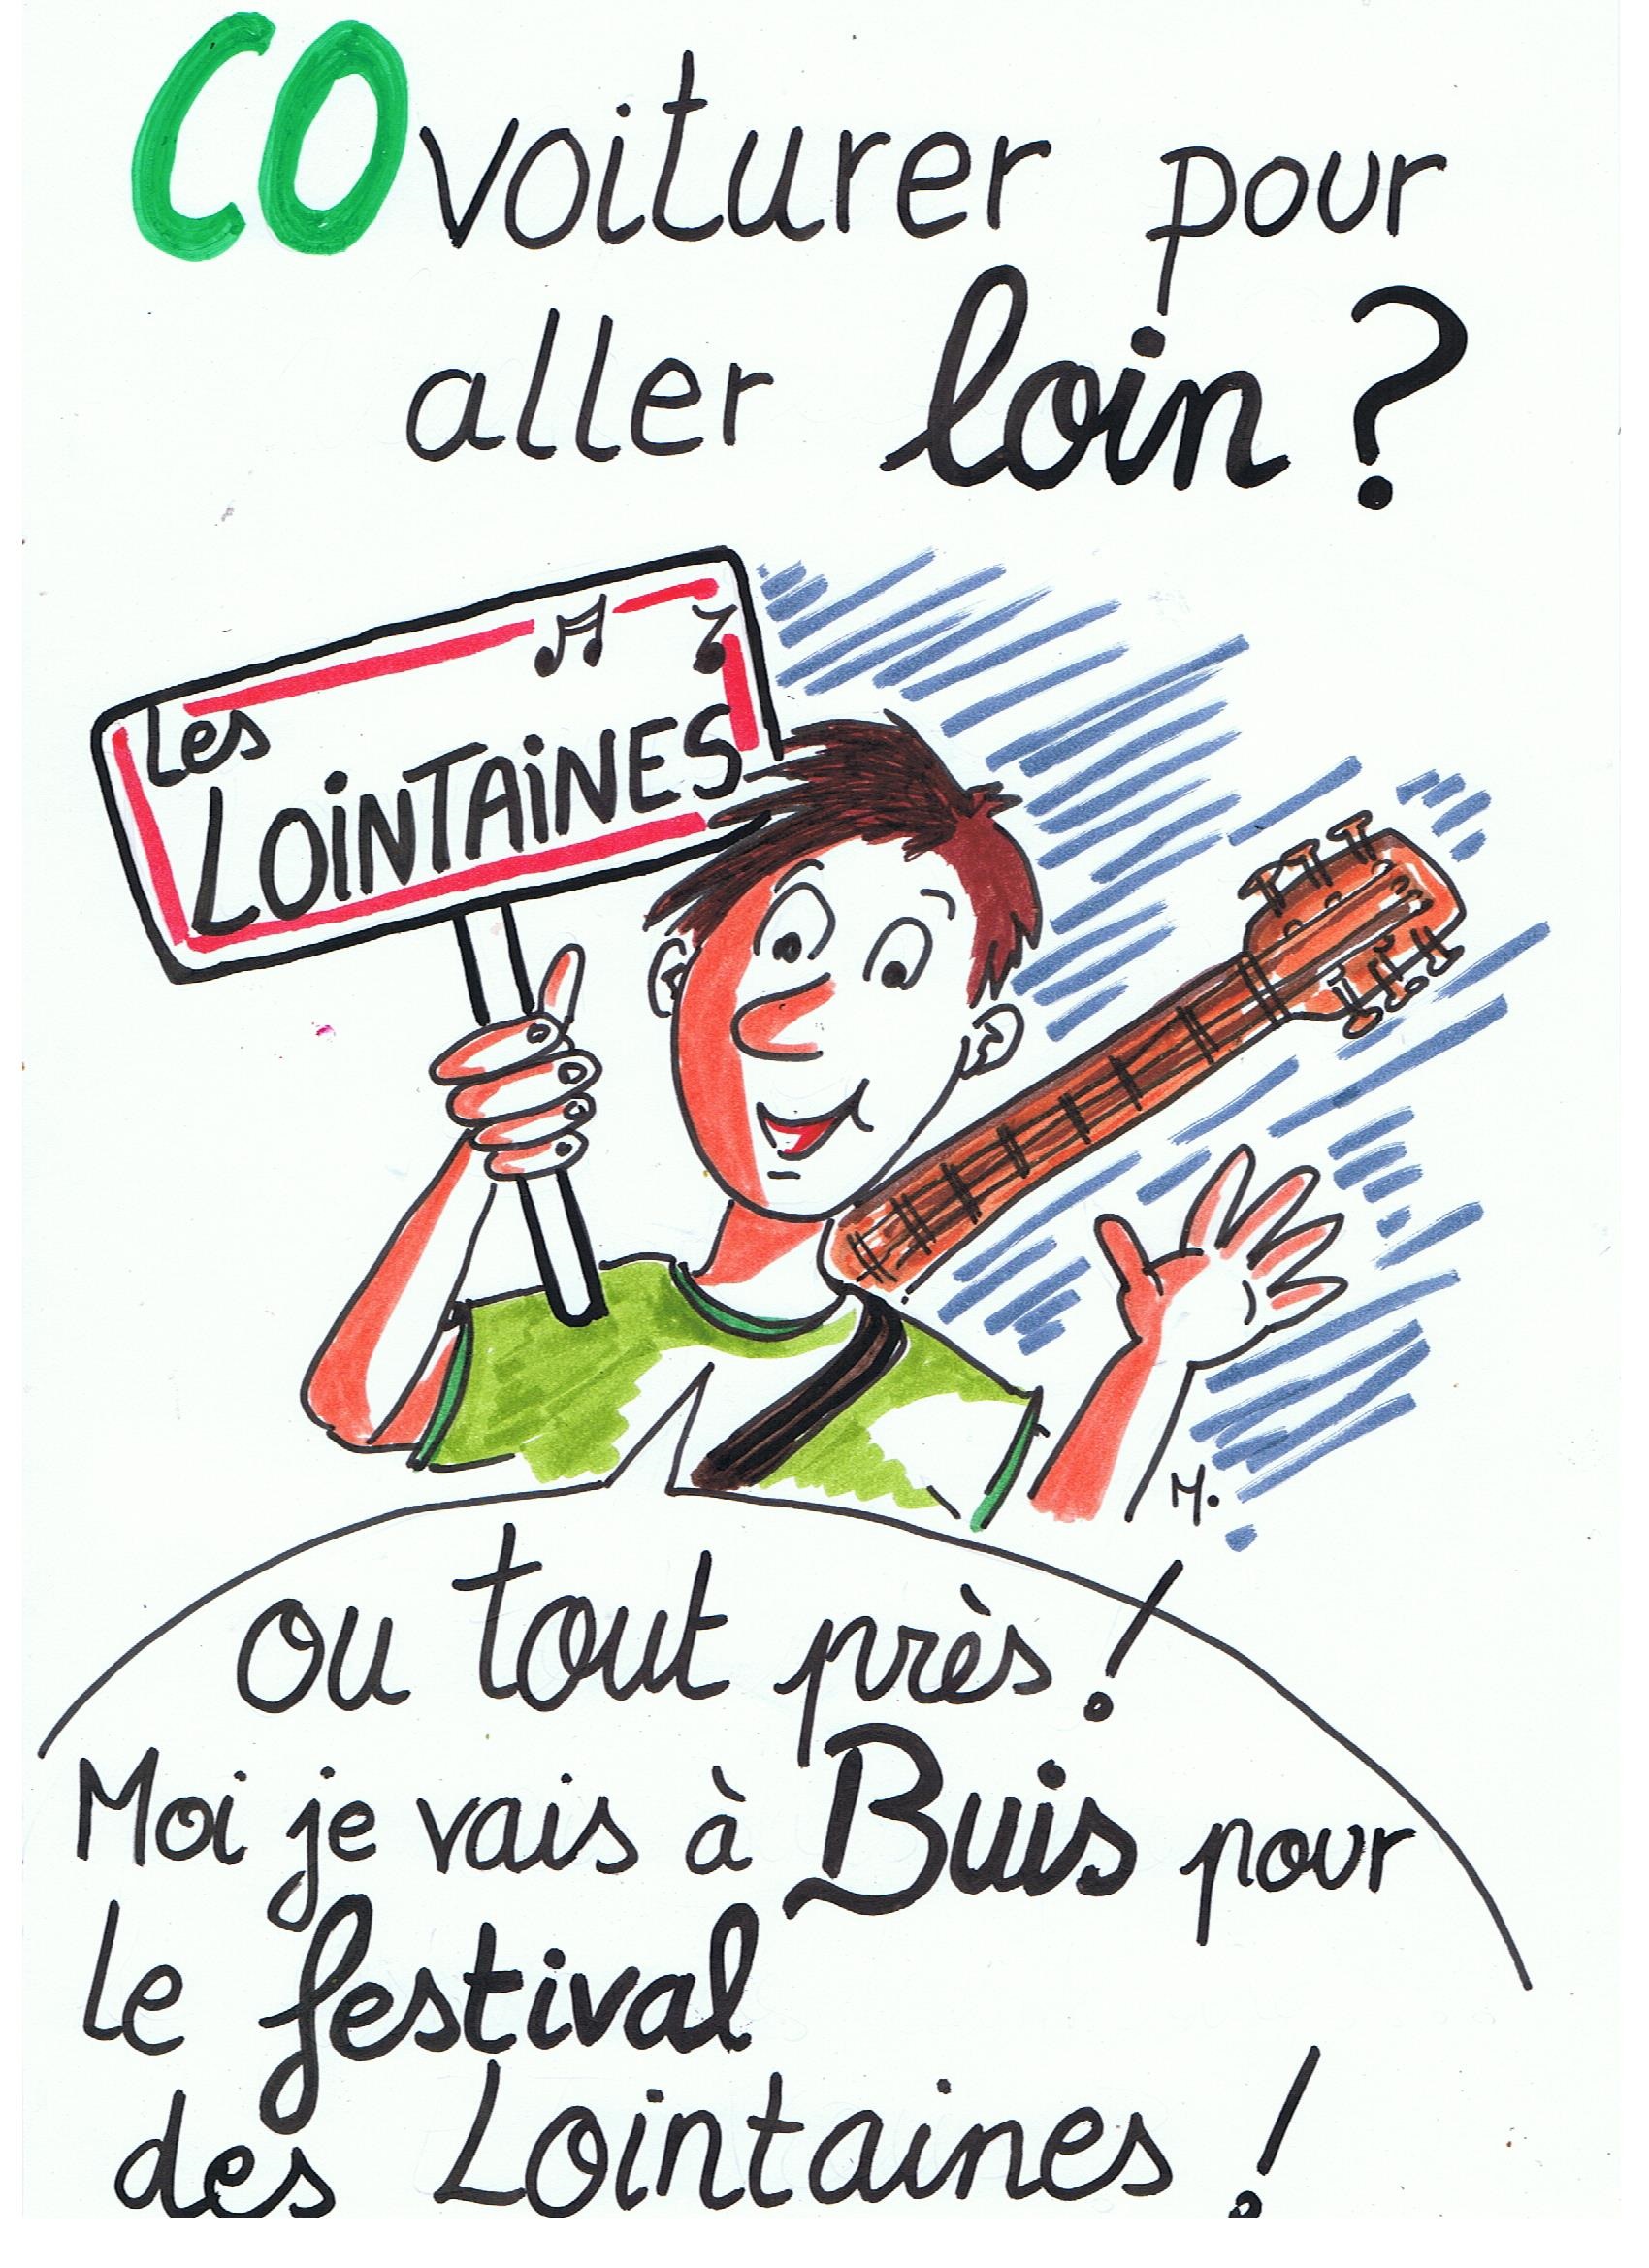 COvoiturer pour
aller loin ?
Les
LOiNTAiNES
M.
ou tout près !
Moi je vais à Buis pour
le festival
des Lointaines !